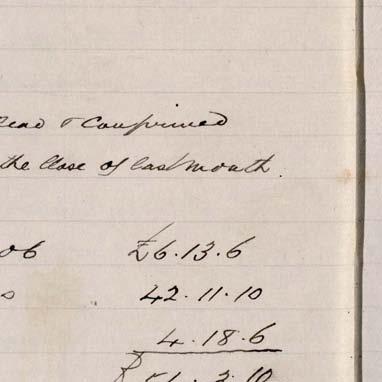 read & Confirmed
the Close of last month.
£6.13.6
42.11.10
4.18.6